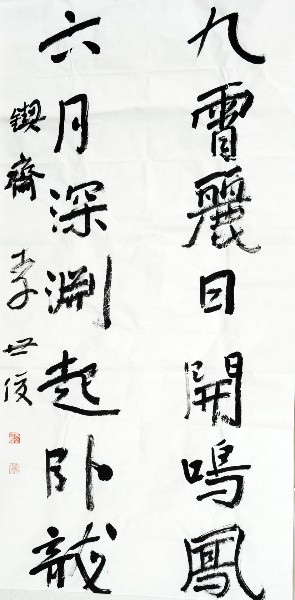 九霄麗日開鳴鳳
六月深淵起卧龍
鍥齋 李世俊